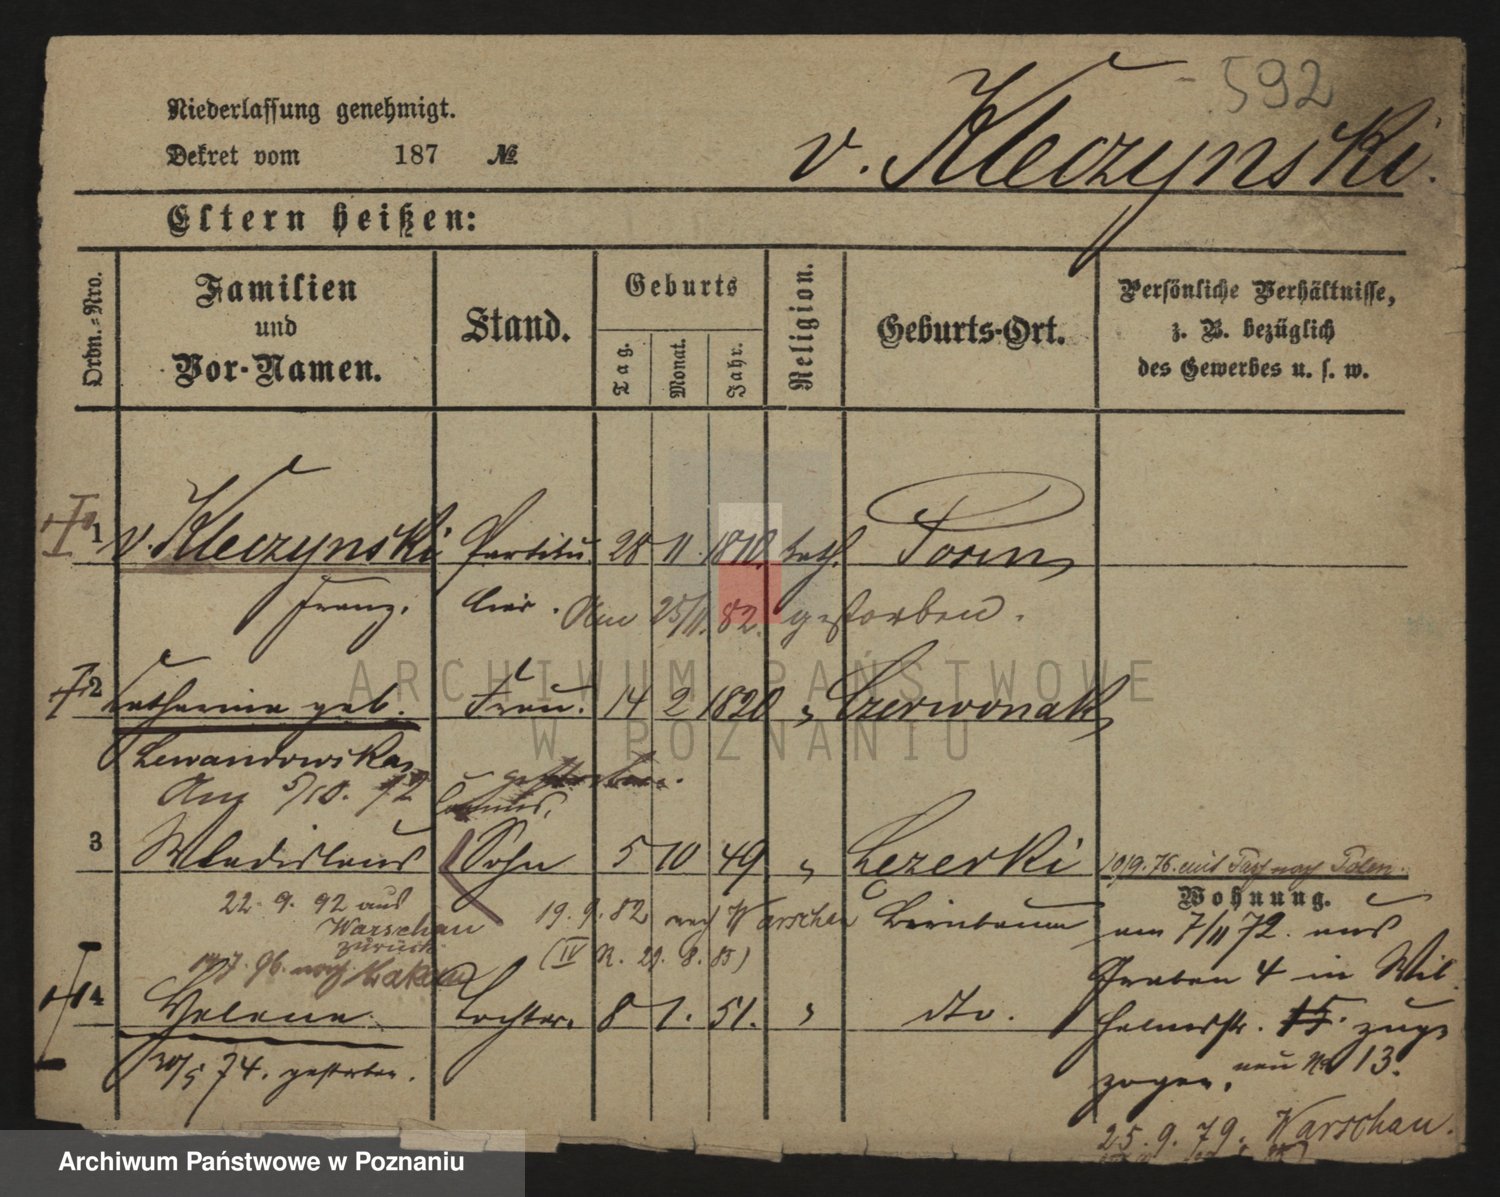 592
Niederlassung genehmigt.
Dekret vom 187 №
v. Kleczynski.
Eltern heißen:
Ordn.-Nro.
Familien
und
Vor-Namen.
Stand.
Geburts
Tag.
Monat.
Jahr.
Religion.
Geburts-Ort.
Persönliche Verhältnisse,
z. B. bezüglich
des Gewerbes u. s. w.
1 v. Kleczynski Particu 28 11. 1810. kath. Posen
Franz. lier. Am 25/11. 82. gestorben.
2 Catharina geb. Frau. 14 2 1820 " Czerwonak
Lewandowska,
Am 5/10. 72 gestorben.
3 Wladislaus Sohn 5 10 49 " Lezerki 10/9. 76. auf Paß nach Polen.
22. 9. 92 aus Warschau zurück. 19. 9. 82 nach Warschau Birnbaum
(IV R. 29. 8. 85)
17/7. 96. nach Krakau
4 Helene Tochter. 8 1. 51. " dto.
20/5 74. gestorben.
Wohnung.
am 7/11 72. aus
Graben 4 in Wil
helmstr. 15. zuge
zogen, neu No 13.
25. 9. 79. Warschau.
ARCHIWUM PAŃSTWOWE
W POZNANIU
Archiwum Państwowe w Poznaniu